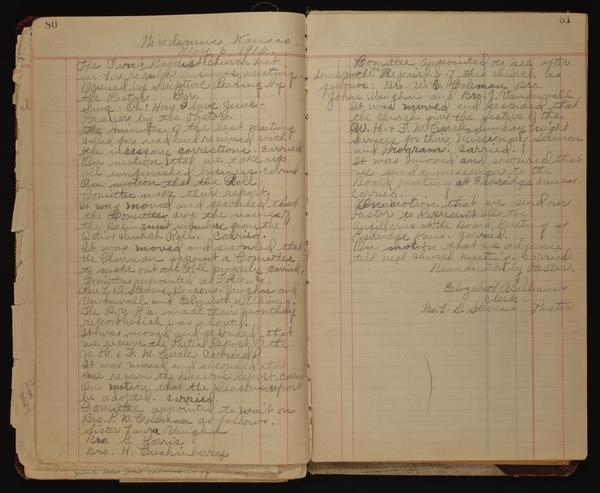 80
Nicodemus, Kansas.
May 6, 1916.
The First Baptist Church met
in her regular business meeting
Opened by Scripture Reading by
the Pastor. Cor.
Sung: Oh! How I love Jesus.
Prayer by the Pastor.
The minutes of the last meeting
called for read and received with
the necessary corrections. Carried
By motion that we take up
all unfinished business. Carried
On motion that the Roll
Committee make their report.
It was moved and seconded that
the Committee drop the names of
the Delinquent members from the
Active Church Roll. Carried.
It was moved and seconded that
the Chairman appoint a Committee
to make out the Roll properly. Carried.
Committee appointed as follows:
Rev. L. D. Stevens, Deacons Vaughn and
Vanduvall and Elizabeth Williams.
The B. Y. P. U. made their monthly
report which was adopted.
It was moved and seconded that
we receive the Partial Report of the
W. H. & F. M. Circle. Carried.
It was moved and seconded that
we receive the Deacons Report. Carried
On motion that the Deacons report
be adopted. Carried.
Comittee appointed to wait on
Bro. P. W. Coleman as follows.
Sister Laura Vaughn
Bro. G. Harris
Bro. H. Bushinberry
81
Comittee appointed to see after
some of the Repairing of this church as
follows: Bro. W. E. Coleman Bro.
John Vaughn and Bro. J. Vanduvall
It was moved and seconded that
the church give the Sisters of the
W. H. & F. M. Circle, Sunday night
services for their Missionary Sermon
and Program. Carried.
It was moved and seconded that
we send a messenger to the
Board meeting at Eskridge Kansas.
Carried.
On motion that we send our
Pastor to Represent us the
Auxiliaries at the Board Meeting at
Eskridge Kans. Carried.
On motion that we adjourn
till next church meeting. Carried
Benediction by Pastor.
Elizabeth Williams
Clerk.
Rev. L. D. Stevens Pastor